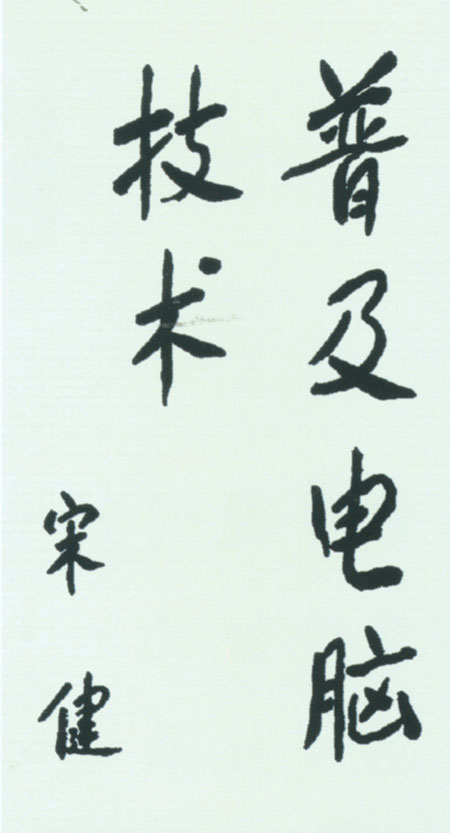 普及电脑
技术
宋健